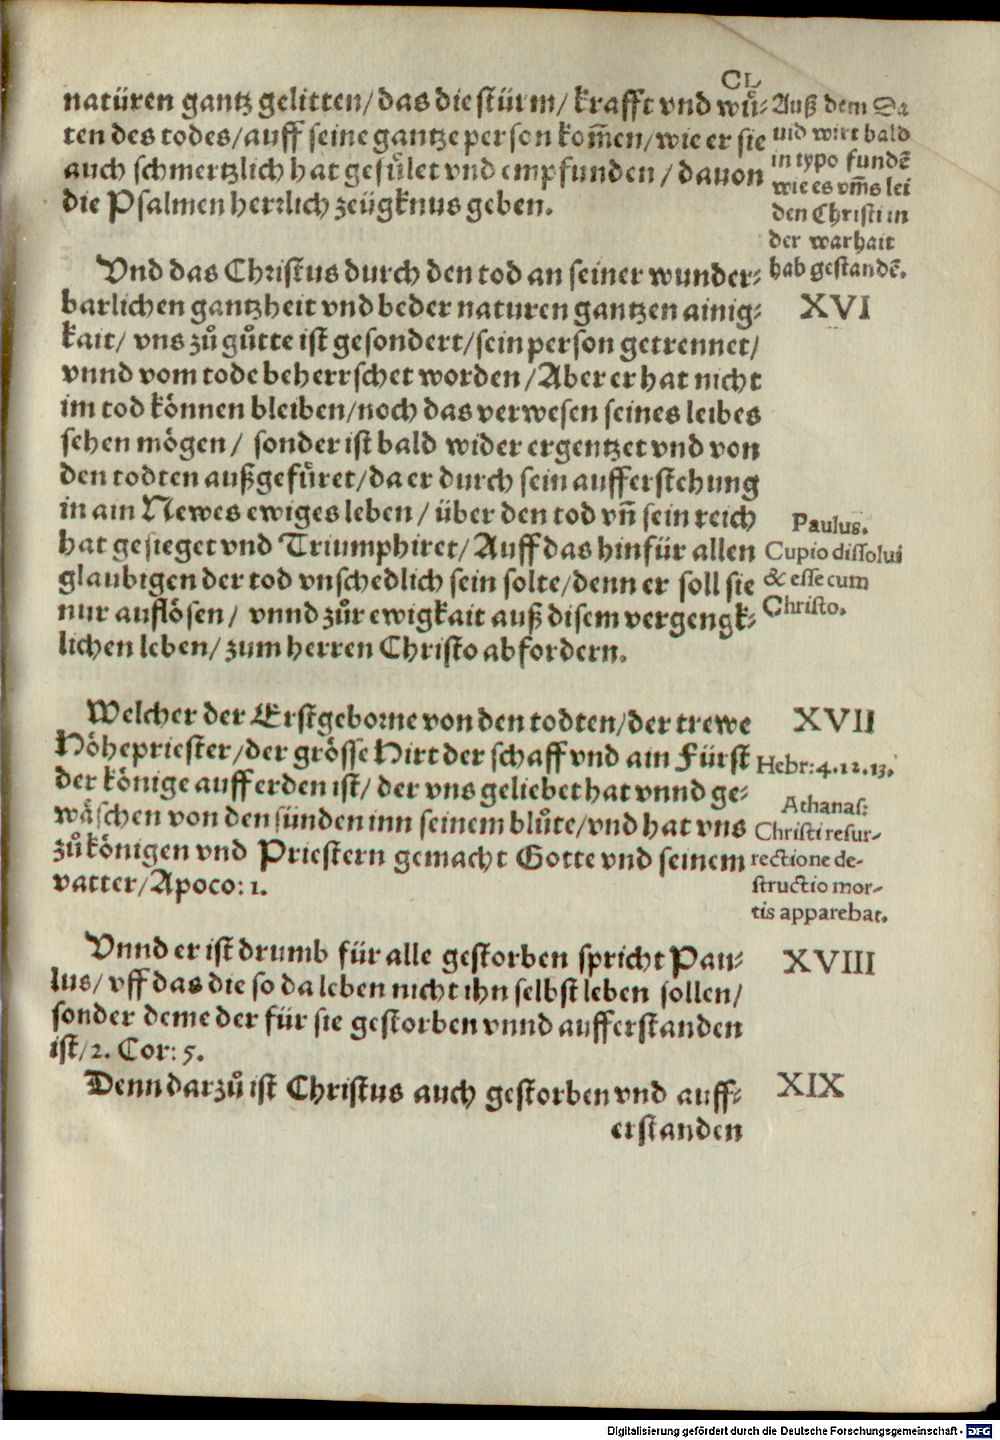 CL
natüren gantz gelitten/ das die stürm/ krafft vnd wuͤ⸗
ten des todes/ auff seine gantze person kom̃en/ wie er sie
auch schmertzlich hat gefuͤlet vnd empfunden/ dauon
die Psalmen herrlich zeügknus geben.
Auß dem Da
uid wirt bald
in typo fundẽ
wie es vm̃s lei
den Christi in
der warhait
hab gestandẽ.
Vnd das Christus durch den tod an seiner wunder⸗
barlichen gantzheit vnd beder naturen gantzen ainig⸗
kait/ vns zuͦ guͦtte ist gesondert/ sein person getrennet/
vnnd vom tode beherrschet worden/ Aber er hat nicht
im tod koͤnnen bleiben/ noch das verwesen seines leibes
sehen moͤgen/ sonder ist bald wider ergentzet vnd von
den todten außgefuͤret/ da er durch sein aufferstehung
in ain Newes ewiges leben/ über den tod vñ sein reich
hat gesieget vnd Triumphiret/ Auff das hinfür allen
glaubigen der tod vnschedlich sein solte/ denn er soll sie
nur aufloͤsen/ vnnd zuͦr ewigkait auß disem vergengk⸗
lichen leben/ zum herren Christo abfordern.
XVI
Paulus.
Cupio dissolui
& esse cum
Christo.
Welcher der Erstgeborne von den todten/ der trewe
Hoͤhepriester/ der groͤsse Hirt der schaff vnd ain Fürst
der koͤnige auff erden ist/ der vns geliebet hat vnnd ge⸗
waͤschen von den sünden inn seinem bluͦte/ vnd hat vns
zuͦ koͤnigen vnd Priestern gemacht Gotte vnd seinem
vatter/ Apoco: 1.
XVII
Hebr: 4. 12. 13.
Athanas:
Christi resur-
rectione de-
structio mor-
tis apparebat.
Vnnd er ist drumb für alle gestorben spricht Pau⸗
lus/ vff das die so da leben nicht ihn selbst leben sollen/
sonder deme der für sie gestorben vnnd aufferstanden
ist/ 2. Cor: 5.
XVIII
Denn darzuͦ ist Christus auch gestorben vnd auff⸗
erstanden
XIX
Digitalisierung gefördert durch die Deutsche Forschungsgemeinschaft - DFG